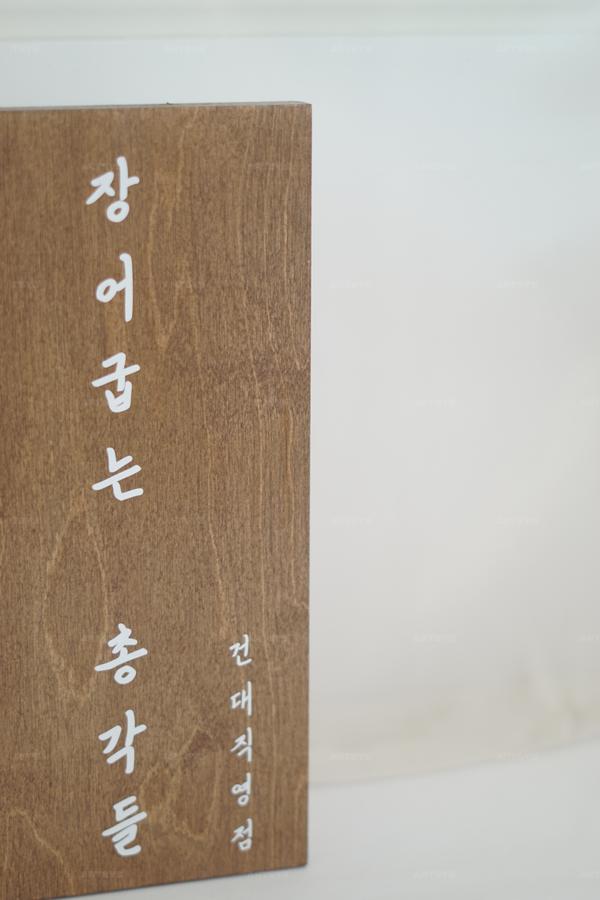 장어굽는 총각들
건대직영점